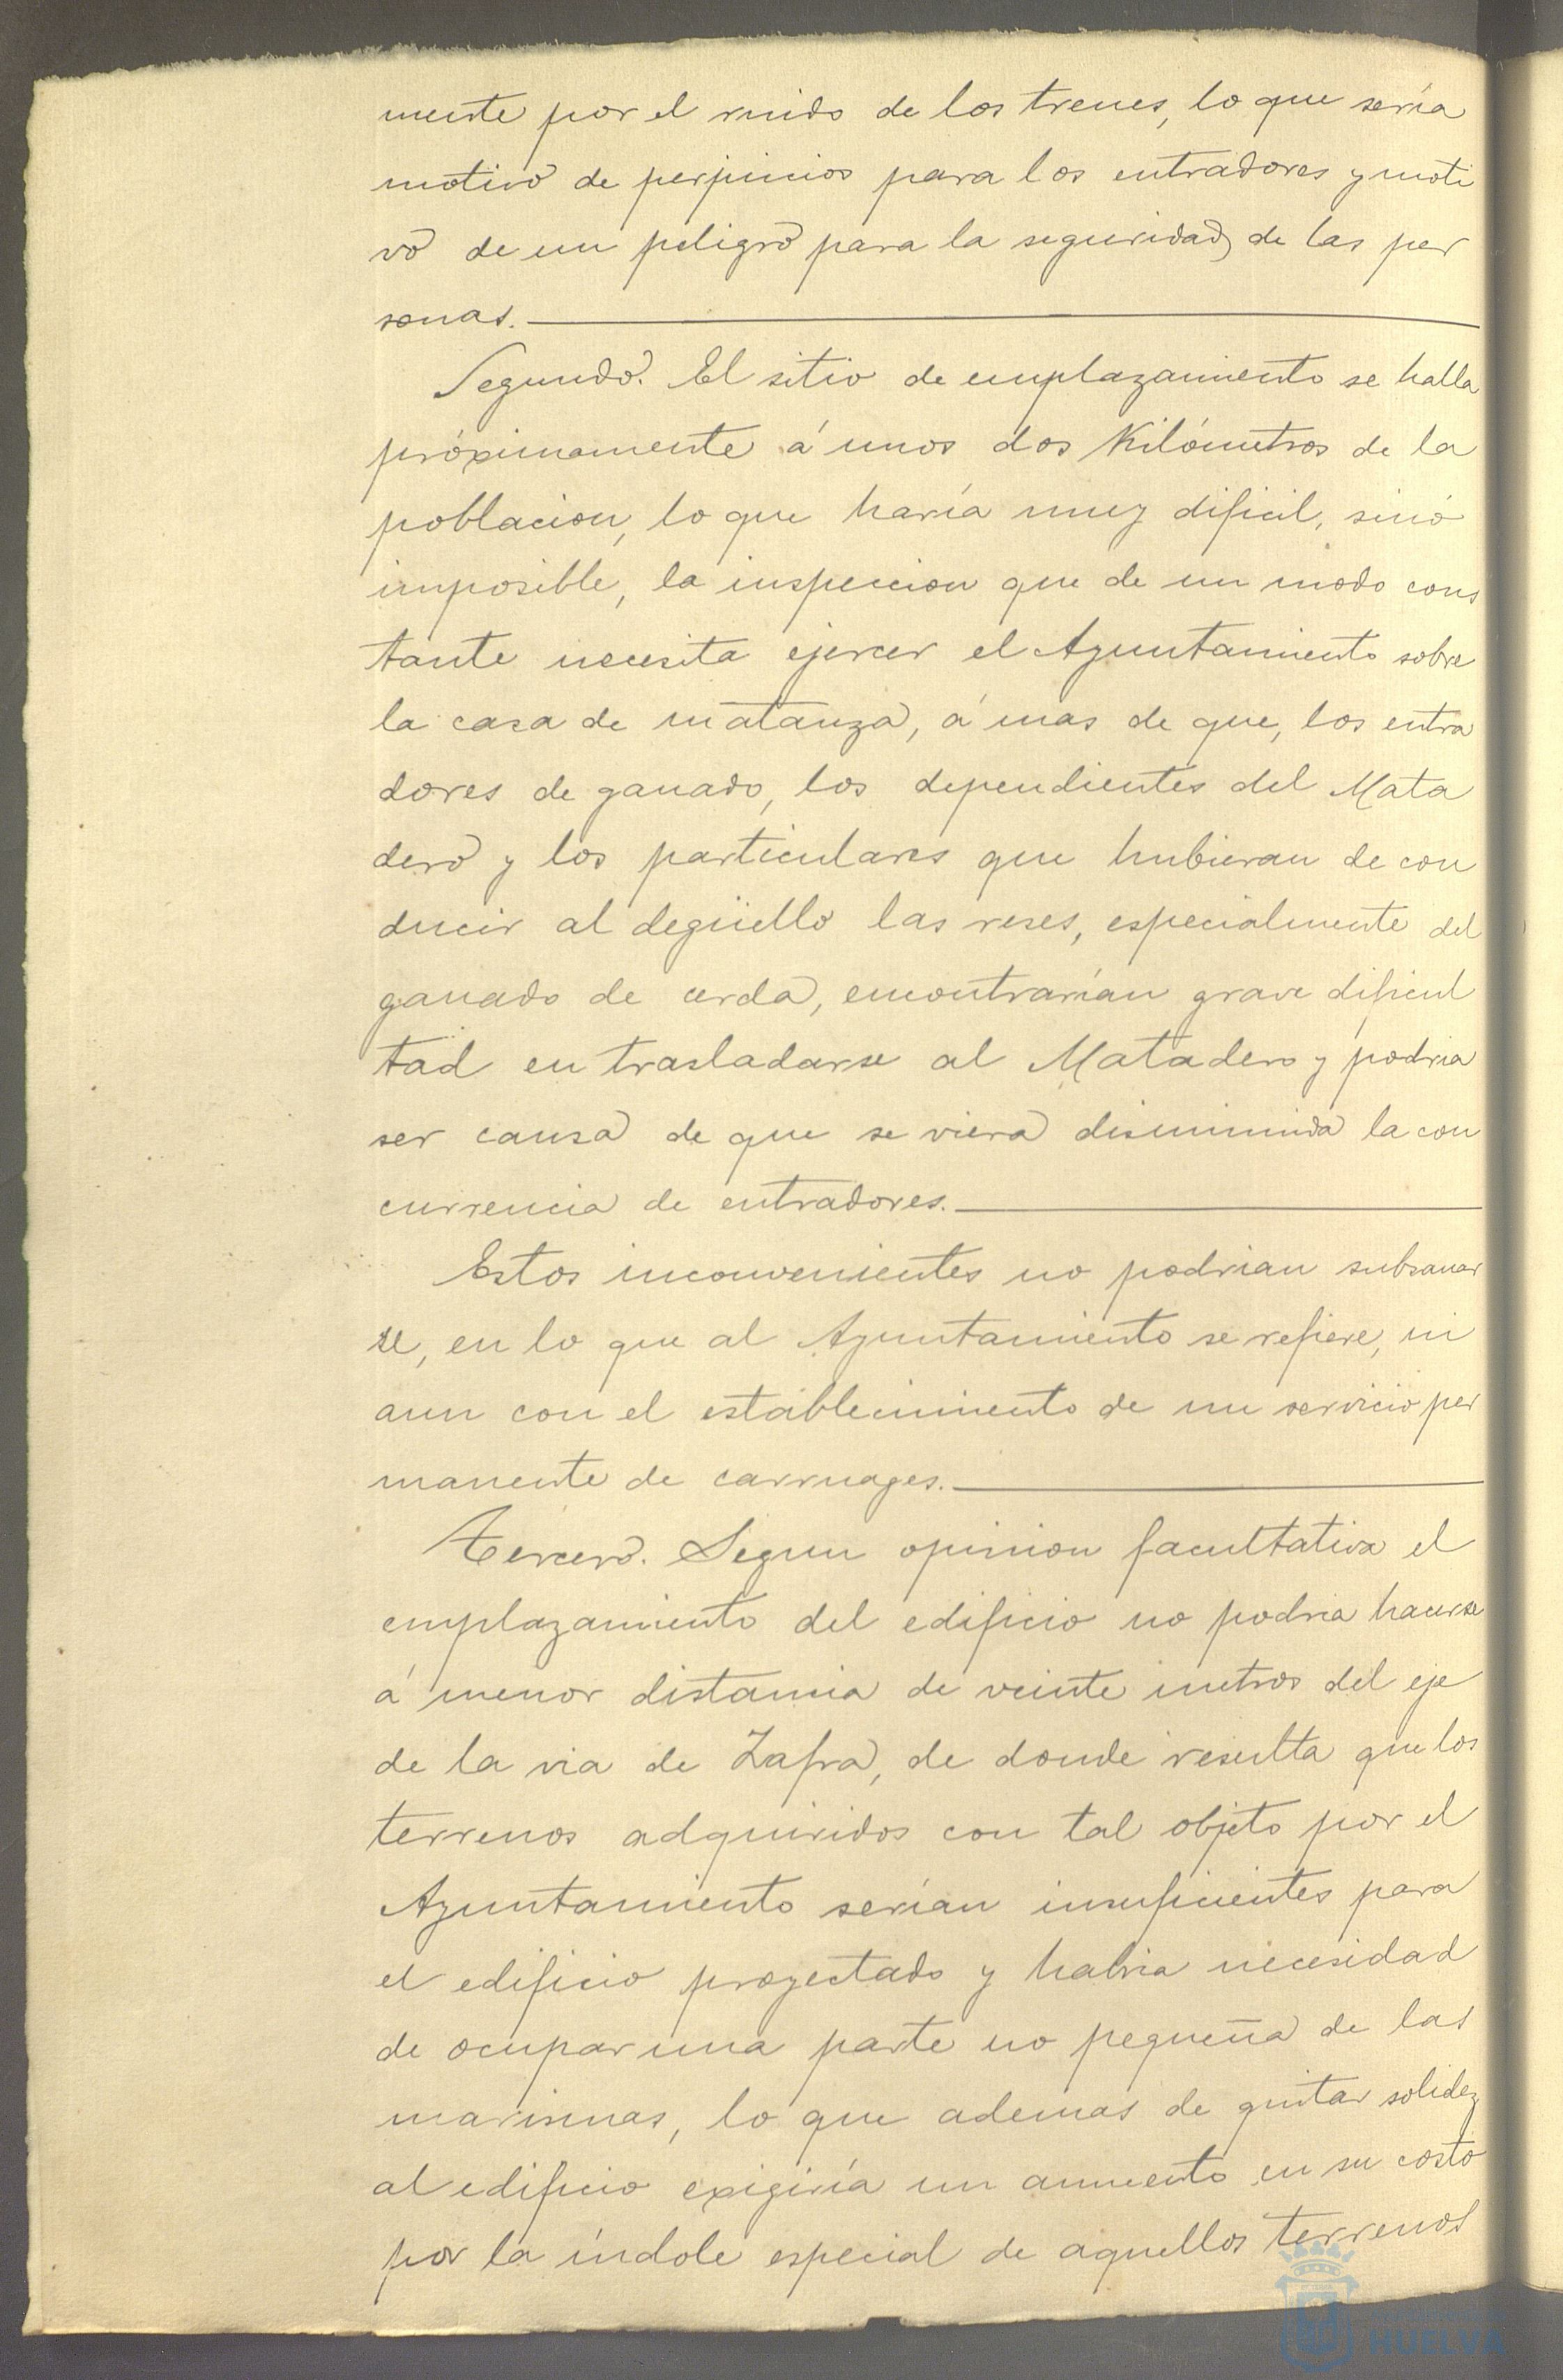 mente por el ruido de los trenes, lo que sería
motivo de perjuicios para los entradores y moti
vo de un peligro para la seguridad de las per
sonas.
Segundo. El sitio de emplazamiento se halla
próximamente á unos dos Kilómetros de la
poblacion, lo que haría muy dificil, sinó
imposible, la inspeccion que de un modo cons
tante necesita ejercer el Ayuntamiento sobre
la casa de matanza, á mas de que, los entra
dores de ganado, los dependientes del Mata
dero y los particulares que hubieran de con
ducir al degüello las reses, especialmente del
ganado de cerda, encontrarían grave dificul
tad en trasladarse al Matadero y podria
ser causa de que se viera disminuida la con
currencia de entradores.
Estos inconvenientes no podrian subsanar
se, en lo que al Ayuntamiento se refiere, ni
aun con el establecimiento de un servicio per
manente de carruages.
Tercero. Segun opinion facultativa el
emplazamiento del edificio no podria hacerse
á menor distancia de veinte metros del eje
de la via de Zafra, de donde resulta que los
terrenos adquiridos con tal objeto por el
Ayuntamiento serían insuficientes para
el edificio proyectado y habria necesidad
de ocupar una parte no pequeña de las
marismas, lo que ademas de quitar solidez
al edificio exigiría un aumento en su costo
por la índole especial de aquellos terrenos
HUELVA